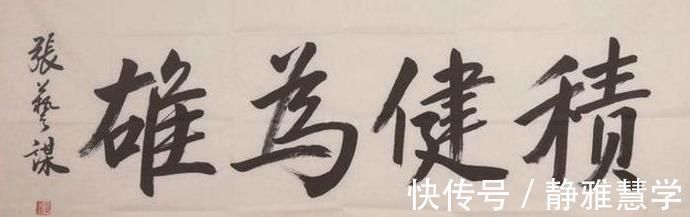 积健为雄
張藝謀
快传号/静雅慧学